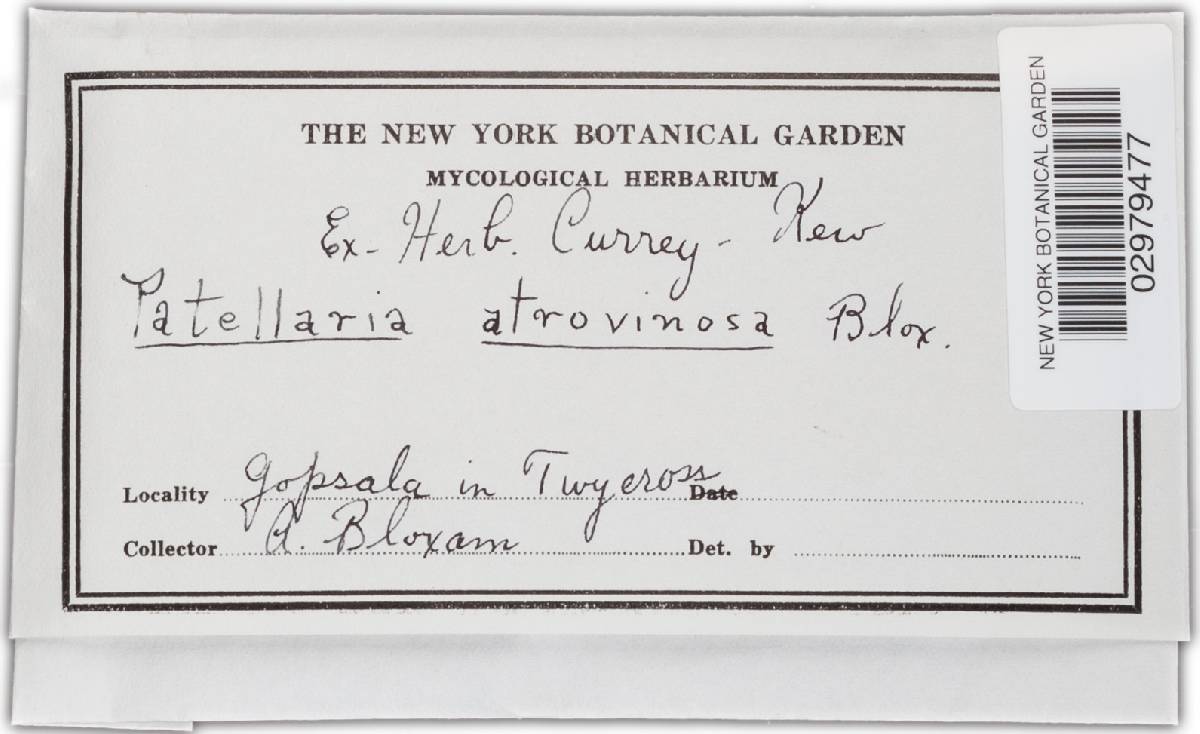 THE NEW YORK BOTANICAL GARDEN
MYCOLOGICAL HERBARIUM
Ex- Herb. Currey - Kew
Patellaria atrovinosa Blox.
Locality Gopsala in Twycross Date
Collector A. Bloxam Det. by
NEW YORK BOTANICAL GARDEN
02979477